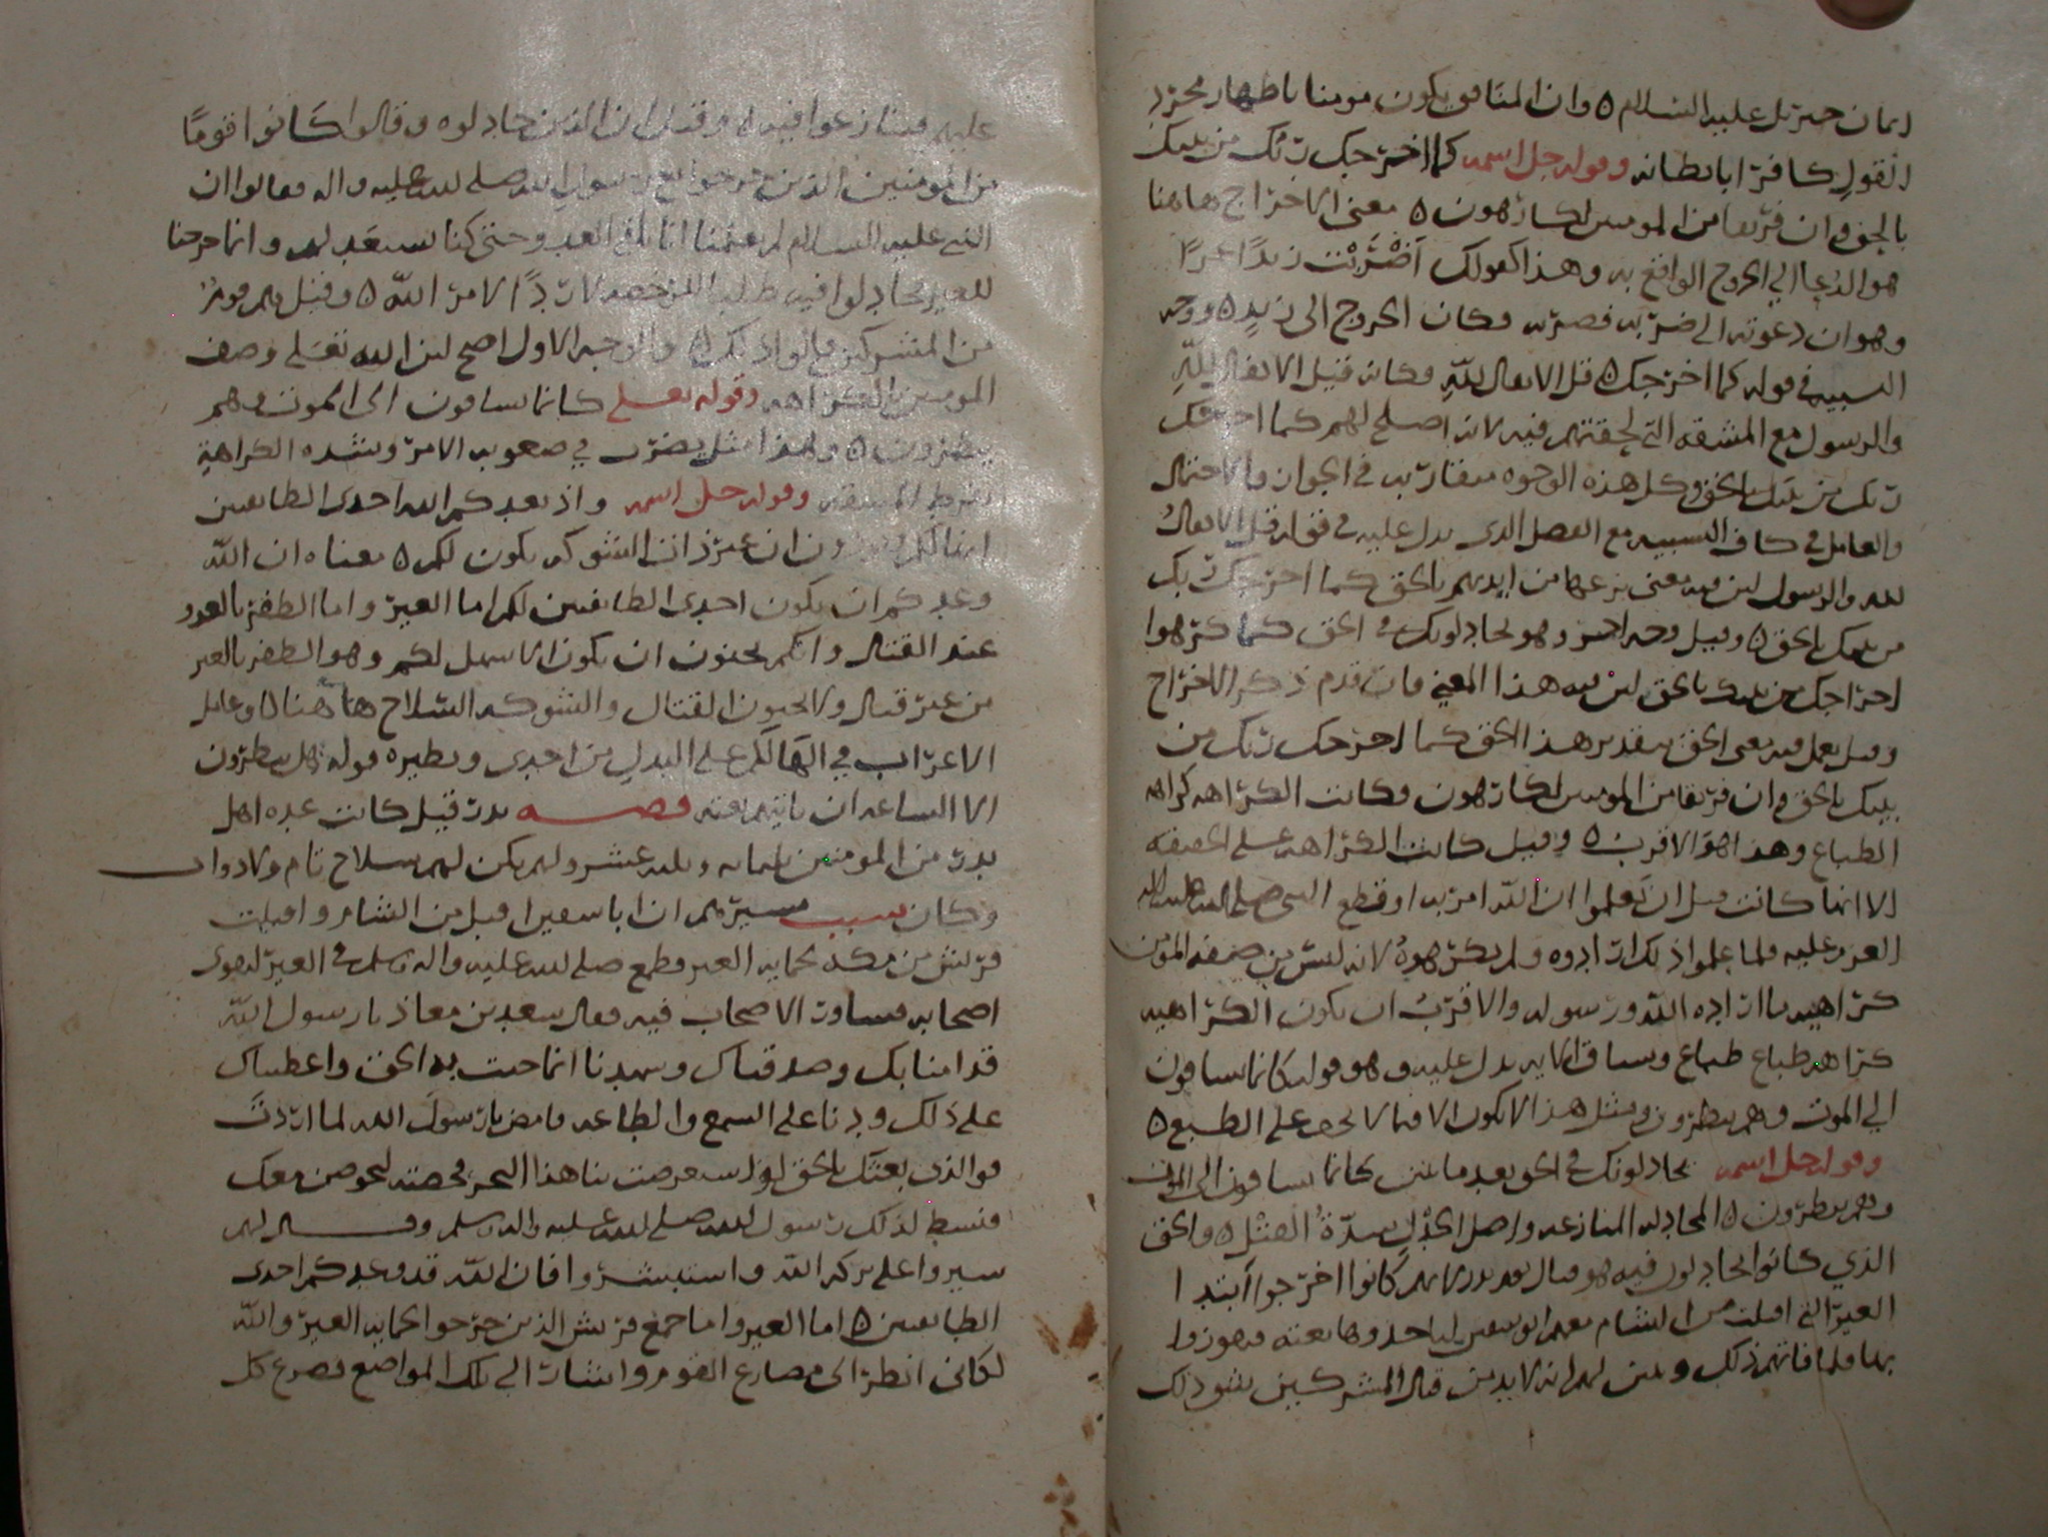 ايمان جبريل عليه السلام ٥ وان المنافق يكون مومنا باظهار مجرد
القول كافرا بابطانه وقوله جل اسمه كما اخرجك ربك من بيتك
بالحق وان فريقا من المومنين لكارهون ٥ معنى الاخراج هاهنا
هو الدعا الى الخروج الواقع به وهذا كقولك اضربت زيدا عمرًا
وهو ان دعوته الى ضربه فضربه فكان الخروج الى زيد ٥ ووجه
التشبيه في قوله كما اخرجك ٥ قل الانفال لله فكانه قيل الانفال لله
والرسول مع المشقه التي لحقتهم فيه لانه اصلح لهم كما اخرجك
ربك من بيتك بالحق وكل هذه الوجوه متقاربه في الجواز والاحتمال
والعامل في كاف التشبيه مع الفصل الذى يدل عليه في قوله قل الانفال
لله والرسول لان فيه معنى نزعها من ايديهم بالحق كما اخرجك ربك
من بيتك بالحق ٥ وقيل وجه اخر وهو يجادلونك في الحق كما كرهوا
اخراجك من بيتك بالحق لان فيه هذا المعنى وان قدم ذكر الاخراج
وقيل يعمل فيه معنى الحق بتقدير هذا الحق كما اخرجك ربك من
بيتك بالحق وان فريقا من المومنين لكارهون وكانت الكراهه كراهه
الطباع وهذا هو الاقرب ٥ وقيل كانت الكراهه على الحقيقه
الا انها كانت قبل ان يعلموا ان الله امر به او قطع النبى صلى الله عليه واله
العزم عليه فلما علموا ذلك ارادوه ولم يكرهوهُ لانه ليس من صفه المومن
كراهيه ما اراده الله ورسوله والاقرب ان يكون الكراهيه
كراهه طباع وسياق الايه يدل عليه وهو قوله كانما يساقون
الي الموت وهم ينظرون ومثل هذا لا يكون الا فيما لا يخف على الطبع ٥
وقوله جل اسمه يجادلونك في الحق بعد ما تبين كانما يساقون الى الموت
وهم ينظرون ٥ المجادله المنازعه واصل الجدل شدّة الفتل ٥ والحق
الذي كانوا يجادلون فيه هو قتال يوم بدر لانهم كانوا اخرجوا ابتدا
العير التى اقبلت من الشام معهم ابو سفين لياخذوها بغته فيفوزوا
بها فلما فاتهم ذلك وتبين لهم انه لا بد من قتال المشركين شق ذلك
عليهم فتنازعوا فيه ٥ وقيل ان الذين جادلوه وقالوا كانوا قومًا
من المومنين الذين خرجوا مع رسول الله صلى الله عليه واله فقالوا ان
النبى عليه السلام لم يعلمنا انا نلقى العدو حتى كنا نستعد لهم وانما خرجنا
للعير فجادلوا فيه طلبا للرخصه لا ردًا لامر الله ٥ وقيل هم قوم
من المشركين قالوا ذلك ٥ والوجه الاول اصح لان الله تعلى وصف
المومنين بالكراهه وقوله تعلى كانما يساقون الى الموت وهم
ينظرون ٥ وهذا مثل يضرب في صعوبه الامر وشده الكراهةِ
وفرط المشقه وقوله جل اسمه واذ يعدكم الله احدى الطايفتين
انها لكم وتودون ان غير ذات الشوكه يكون لكم ٥ معناه ان الله
وعدكم ان يكون احدى الطايفتين لكم اما العير واما الظفر بالعدو
عند القتال وانكم تحبون ان يكون الاسهل لكم وهو الظفر بالعير
من غير قتال ولا تحبون القتال والشوكه السلاح هاهنا ٥ وعامل
الاعراب في انها لكم على البدل من احدى ونظيره قوله هل ينظرون
الا الساعه ان تاتيهم بغته قصه بدر قيل كانت عده اهل
بدر من المومنين ثلثمايه وثلثه عشر ولم يكن لهم سلاح تام ولا دواب
وكان سبب مسيرهم ان ابا سفين اقبل من الشام واقبلت
قريش من مكه لحمايه العير فطمع صلى الله عليه واله وسلم في العير لهوى
اصحابه فشاور الاصحاب فيه فقال سعد بن معاذ يا رسول الله
قد امنا بك وصدقناك وشهدنا انما جيت به الحق واعطيناك
على ذلك عهدنا على السمع والطاعه فامض يا رسول الله لما اردت
فوالذى بعثك بالحق لو استعرضت بنا هذا البحر فخضته لخوضن معك
فنشط لذلك رسول الله صلى الله عليه واله وسلم وقال لهم
سيروا على بركه الله واستبشروا فان الله قد وعدكم احدى
الطايفتين ٥ اما العير واما جمع قريش الذين خرجوا لحمايه العير والله
لكانى انظر الى مصارع القوم واشار الى تلك المواضع فصرع كل